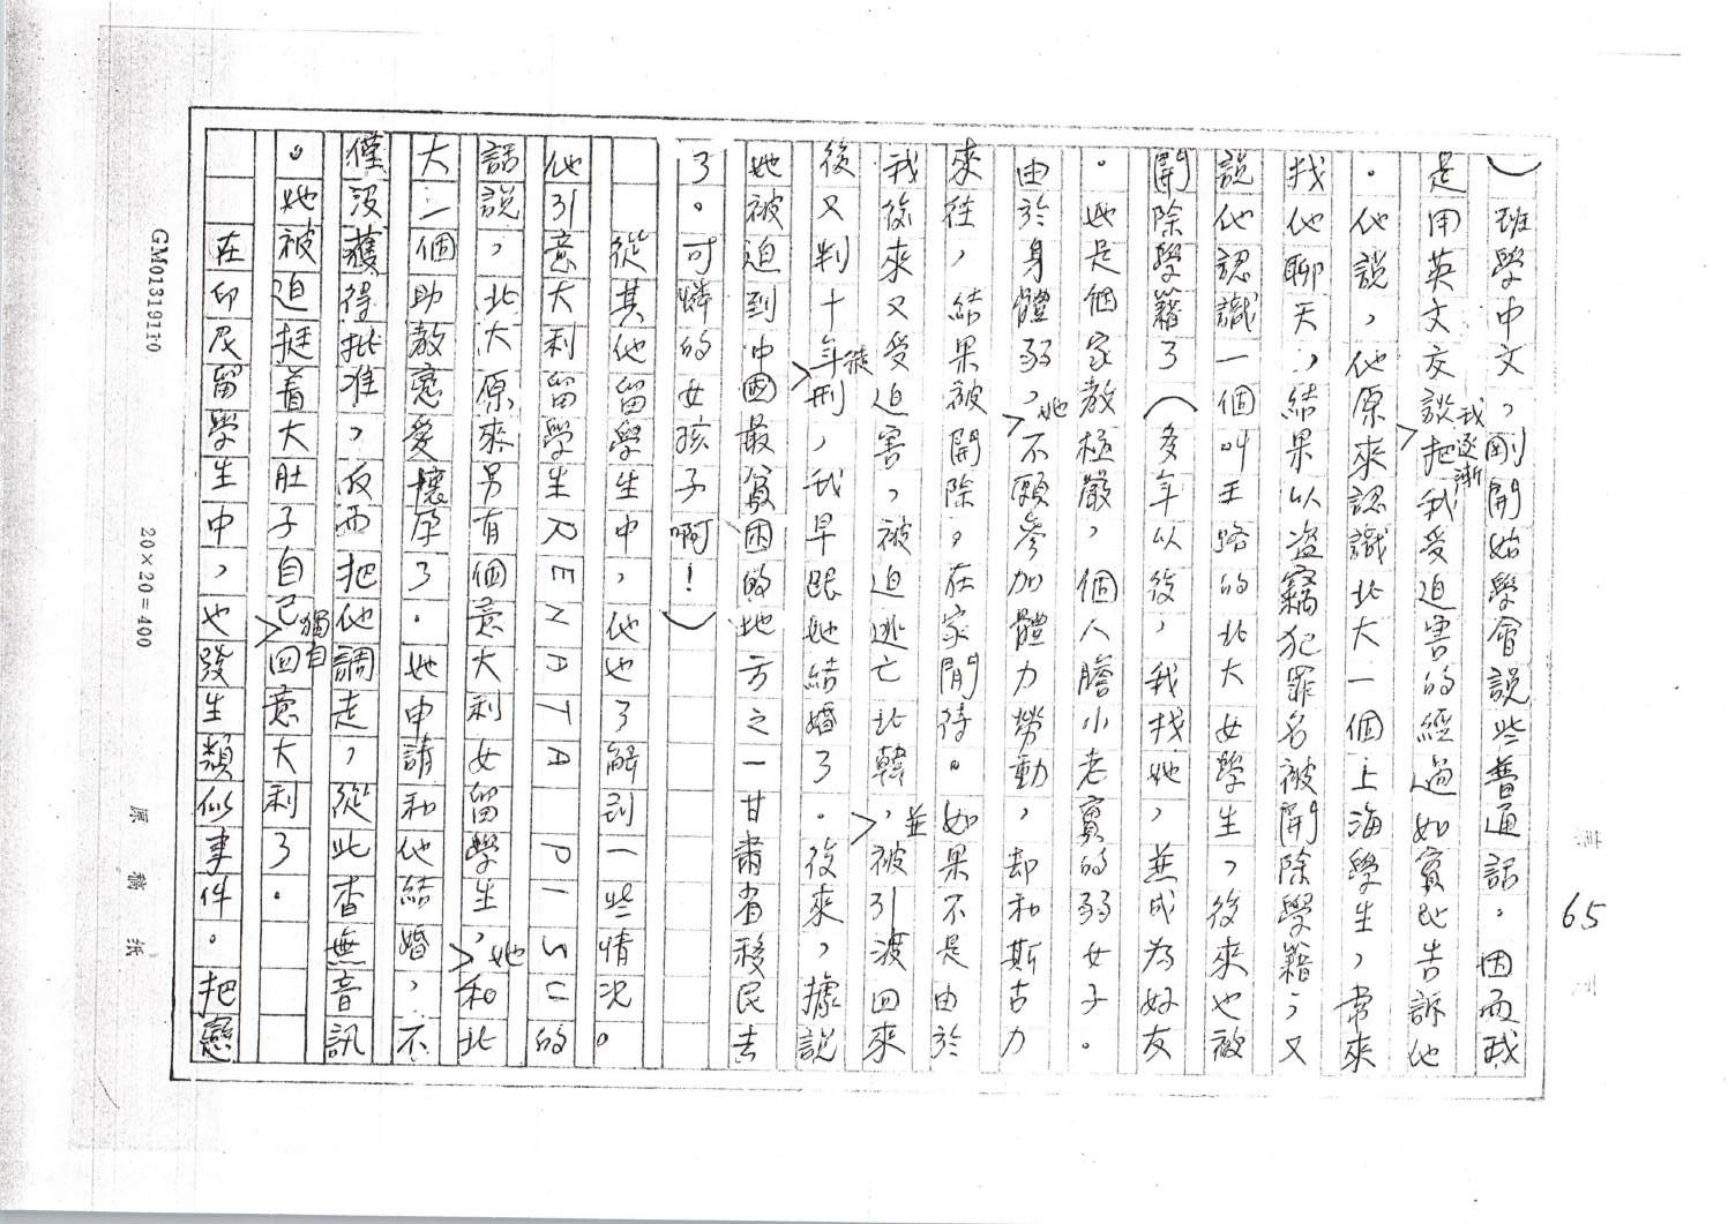 ）班學中文，剛開始學會說些普通話。因而我
是用英文交談，我逐漸把我受迫害的經過如實地告訴他
。他說，他原來認識北大一個上海學生，常來
找他聊天，結果以盜竊犯罪名被開除學籍；又
說他認識一個叫王路的北大女學生，後來也被
開除學籍了（多年以後，我找她，並成為好友
。她是個家教極嚴，個人膽小老實的弱女子。
由於身體弱，她不願參加體力勞動，却和斯古力
來往，結果被開除，在家閒待。如果不是由於
我後來又受迫害，被迫逃亡北韓，並被引渡回來
後又判十年徒刑，我早跟她結婚了。後來，據說
她被迫到中國最貧困的地方之一甘肅省移民去
了。可憐的女孩子啊！）
從其他留學生中，他也了解到一些情況。
他引意大利留學生RENATA PISU的
話說，北大原來另有個意大利女留學生，她和北
大一個助教戀愛懷孕了。她申請和他結婚，不
僅沒獲得批准，反而把他調走，從此杳無音訊
。她被迫挺着大肚子自己獨自回意大利了。
在印尼留學生中，也發生類似事件。把戀
65
GM0131911:0
20×20=400
原稿紙